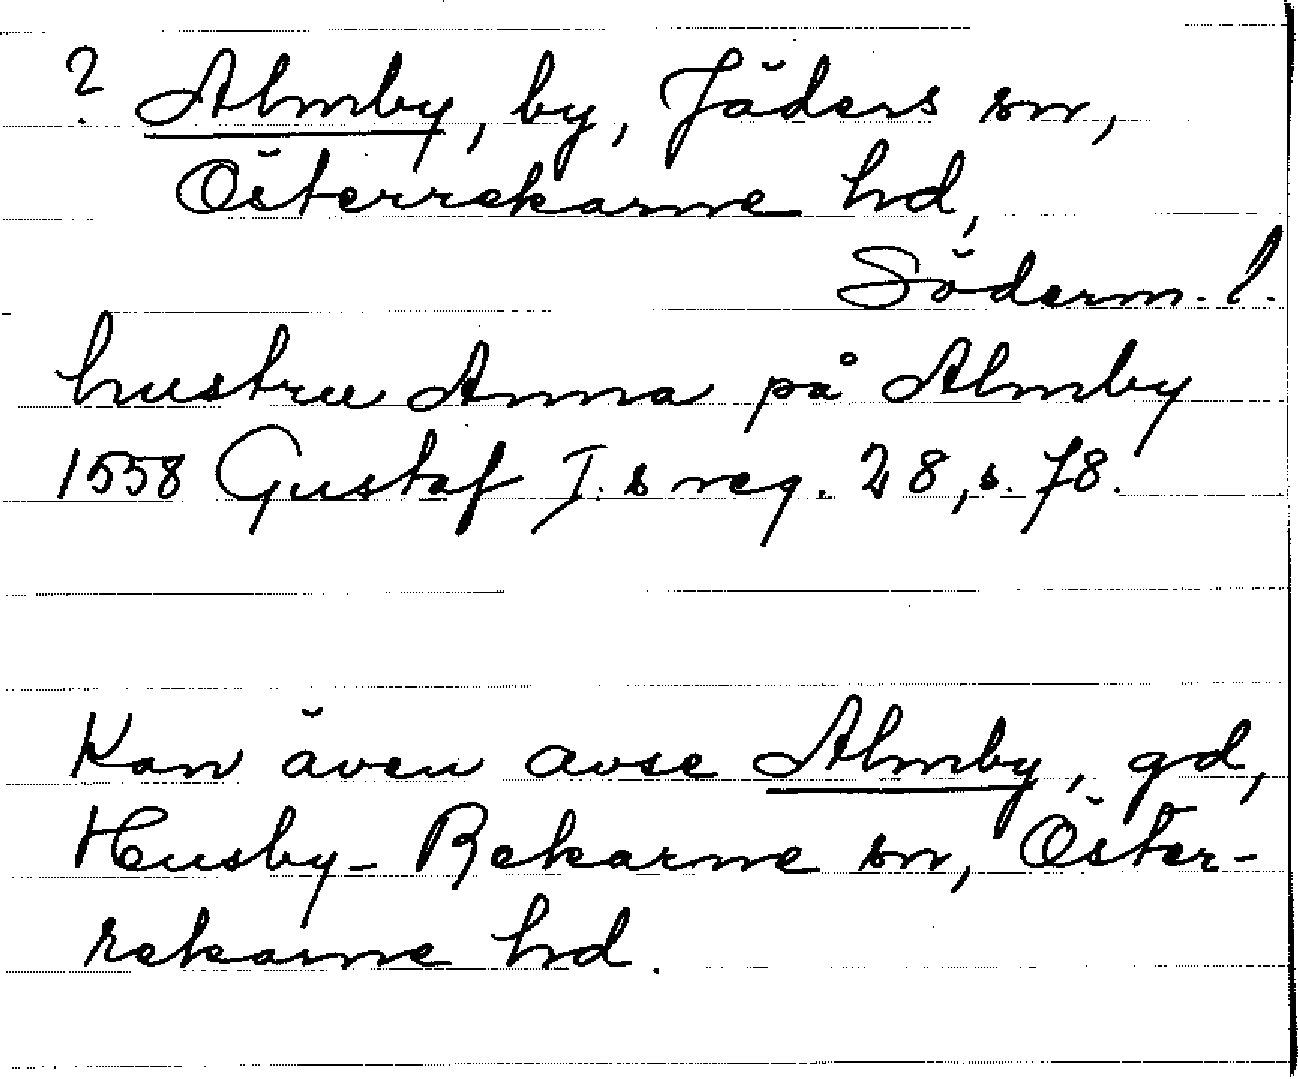 ? Almby, by, Jäders sn,
Österrekarne hd,
Söderm. l.
hustru Anna på Almby
1558 Gustaf I:s reg. 28, s. 78.
Kan även avse Almby, gd,
Husby-Rekarne sn, Öster-
rekarne hd.